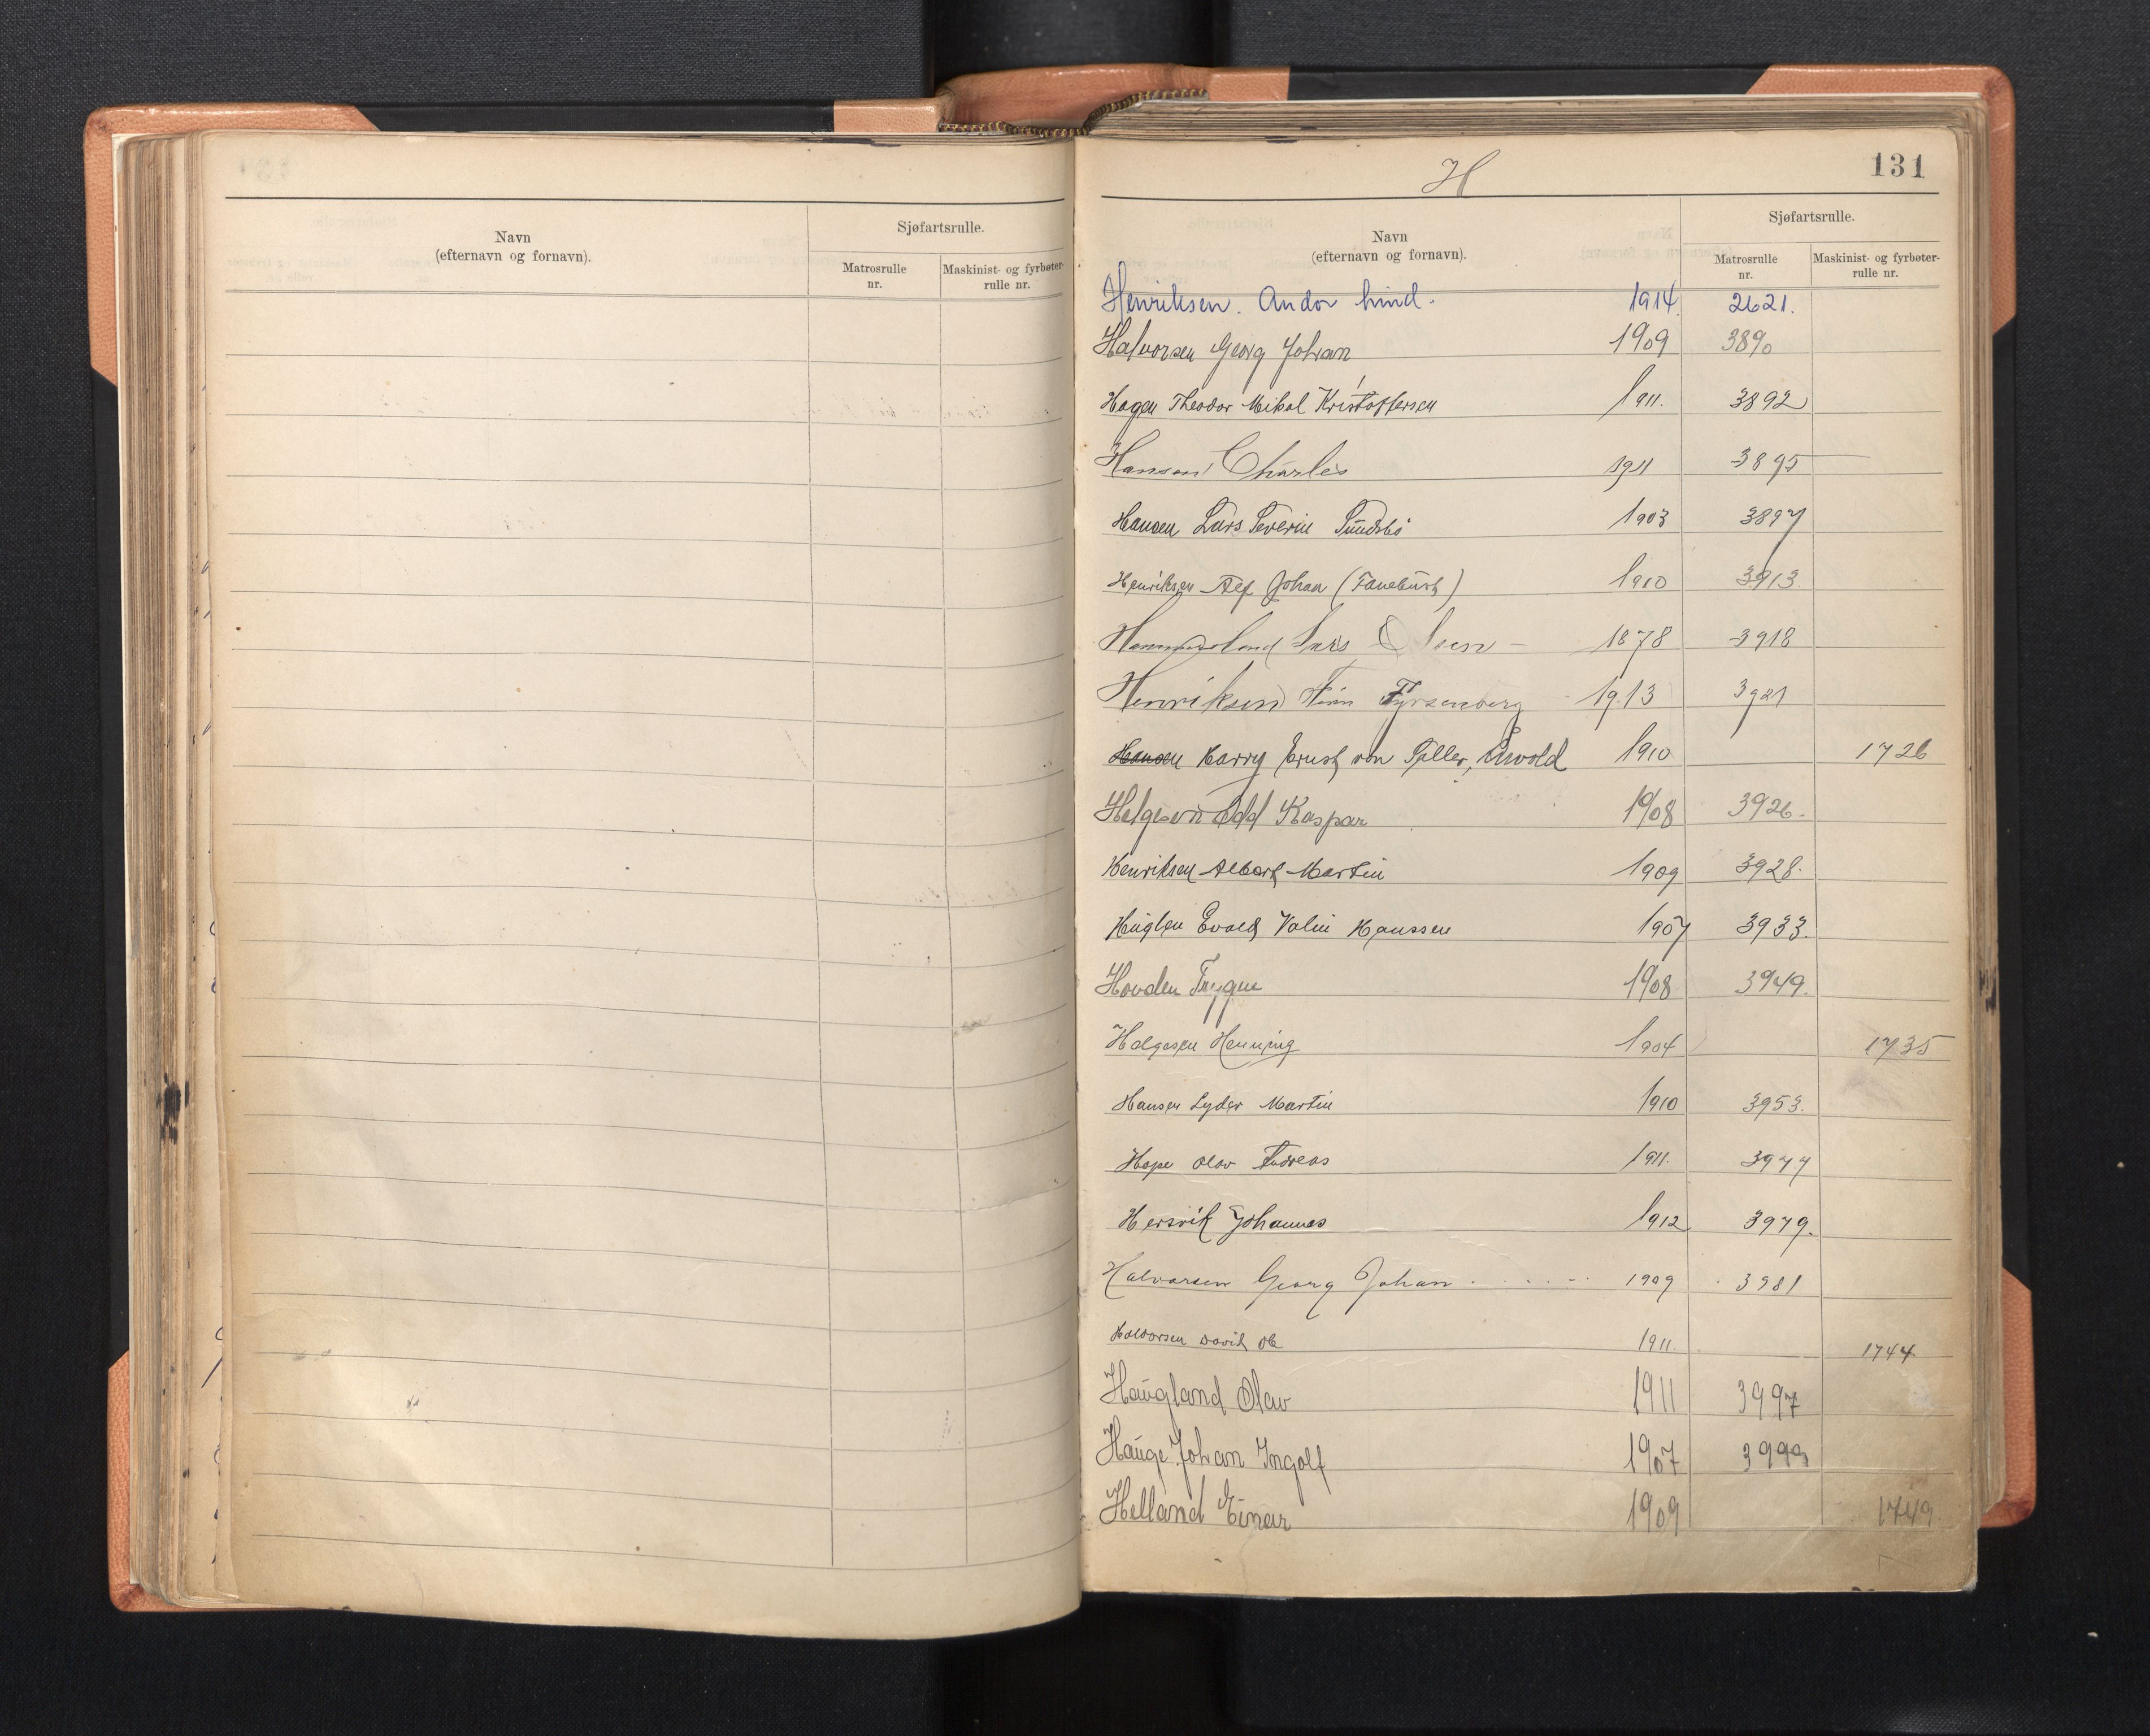 Navn
(efternavn og fornavn).
Sjøfartsrulle.
Matrosrulle
nr.
Maskinist- og fyrbøter-
rulle nr.
H
131
Navn
(efternavn og fornavn).
Sjøfartsrulle.
Matrosrulle
nr.
Maskinist- og fyrbøter-
rulle nr.
Henriksen. Andor Lind. 1914 2621.
Halvorsen Georg Johan 1909 3890
Hagen Theodor Mikal Kristoffersen 1911. 3892
Hansen Charles 1911 3895
Hansen Lars Severin Sundsbö 1903 3897
Henriksen Alf Johan 1910 3913.
Hammersland Lars Olsen - 1878 3918
Henriksen Finn Fyrsenberg 1913 3921
Hansen Harry Ernst von Tiller, 1910 1726
Helgesen Odd Kaspar 1908 3926.
Henriksen Albert Martin 1909 3928.
Evald Hanssen 1907 3933.
Hovden Trygve 1908 3949.
Helgesen Henning 1904 1735
Hansen Lyder Martin 1910 3953.
Hope Olav Andreas 1911. 3977
Hersvik Johannes 1912 3979.
Halvorsen Georg Johan . . . . . 1909 3981
Halvorsen 1911. 1744
Haugland Olav 1911 3997
Hauge Johan Ingolf 1907 3999
Helland Einar 1909 1749